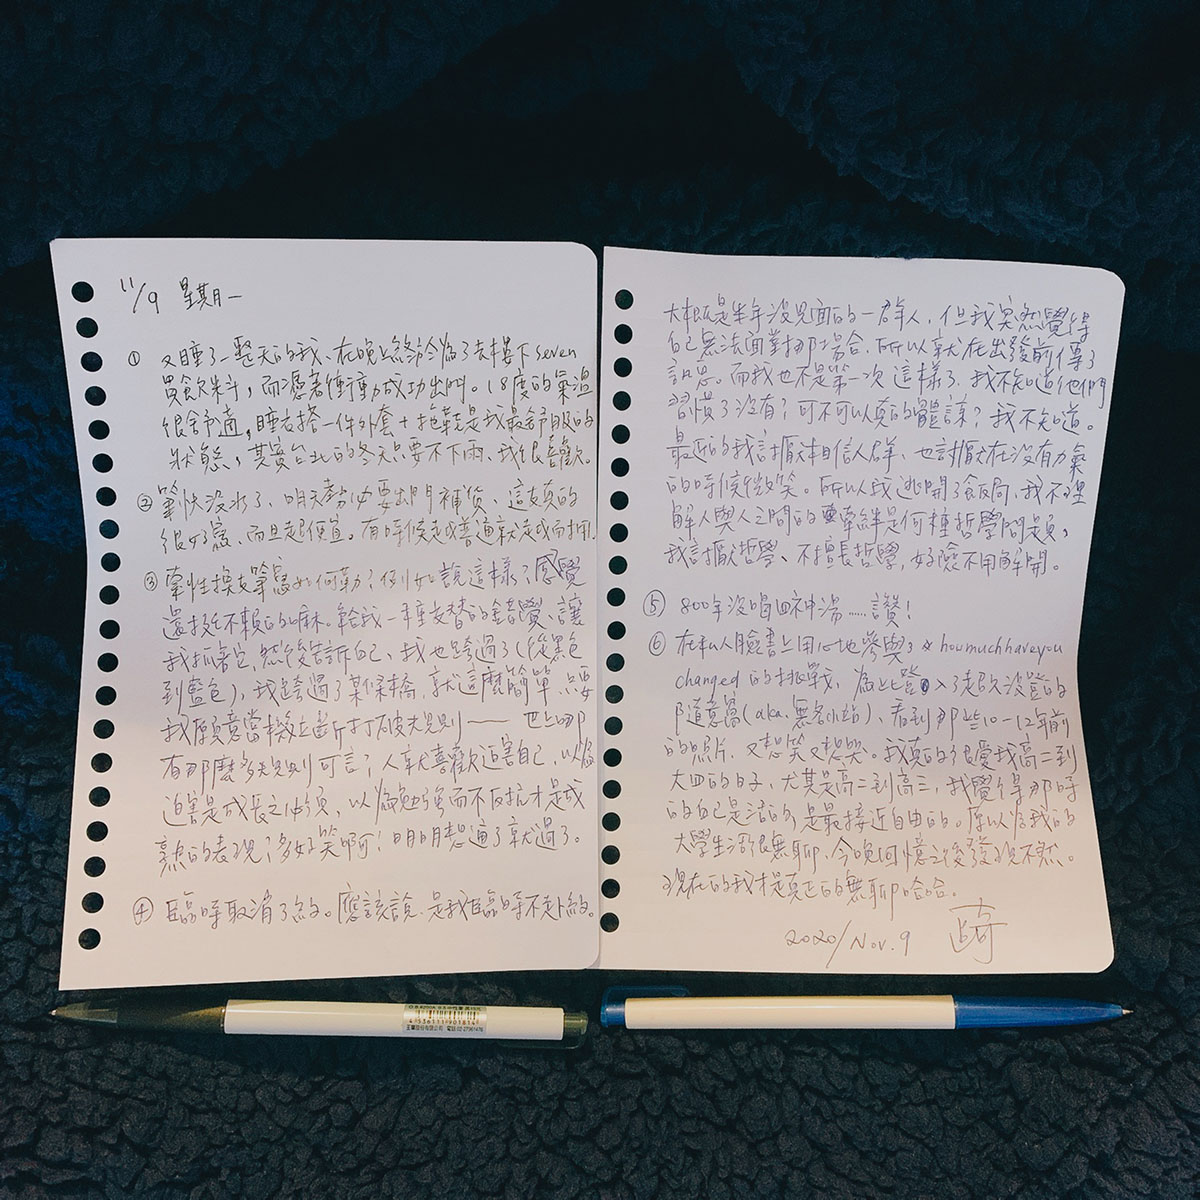 11/9 星期一
① 又睡了一整天的我、在晚上終於為了去樓下seven
買飲料,而憑著衝動成功出門。18度的氣溫
很舒適,睡衣搭一件外套+拖鞋是我最舒服的
狀態,其實台北的冬天只要不下雨、我很喜歡。
② 筆快沒水了、明天勢必要出門補貨、這支真的
很好寫、而且超便宜。有時候越普通就越耐用。
③ 索性換支筆寫如何勒?例如說這樣?感覺
還挺不賴的嘛。給我一種交替的錯覺、讓
我抓著它,然後告訴自己,我也跨過了(從黑色
到藍色),我跨過了某條橋,就這麼簡單,只要
我願意當機立斷打破規則——世上哪
有那麼多規則可言?人就喜歡迫害自己,以為
迫害是成長之必須,以為勉強而不反抗才是成
熟的表現?多好笑啊!明明想通了就過了。
④ 臨時取消了約。應該說、是我臨時不赴約。
大概是半年沒見面的一群人,但我突然覺得
自己無法面對那場合,所以就在出發前傳了
訊息。而我也不是第一次這樣了,我不知道他們
習慣了沒有?可不可以真的體諒?我不知道。
最近的我討厭相信人群、也討厭在沒有力氣
的時候微笑。所以我逃開了飯局,我不理
解人與人之間的牽絆是何種哲學問題,
我討厭哲學、不擅長哲學,好險不用解開。
⑤ 800年沒喝四神湯……讚!
⑥ 在私人臉書上用心地參與了#howmuchhaveyou
changed的挑戰,為此登入了超久沒登的
隨意窩(aka.無名小站)、看到那些10-12年前
的照片,又想笑又想哭。我真的很愛我高二到
大四的日子,尤其是高二到高三,我覺得那時
的自己是活的,是最接近自由的。原以為我的
大學生活很無聊,今晚回憶之後發現不然。
現在的我才是真正的無聊哈哈。
2020/Nov.9
4 536111 901814